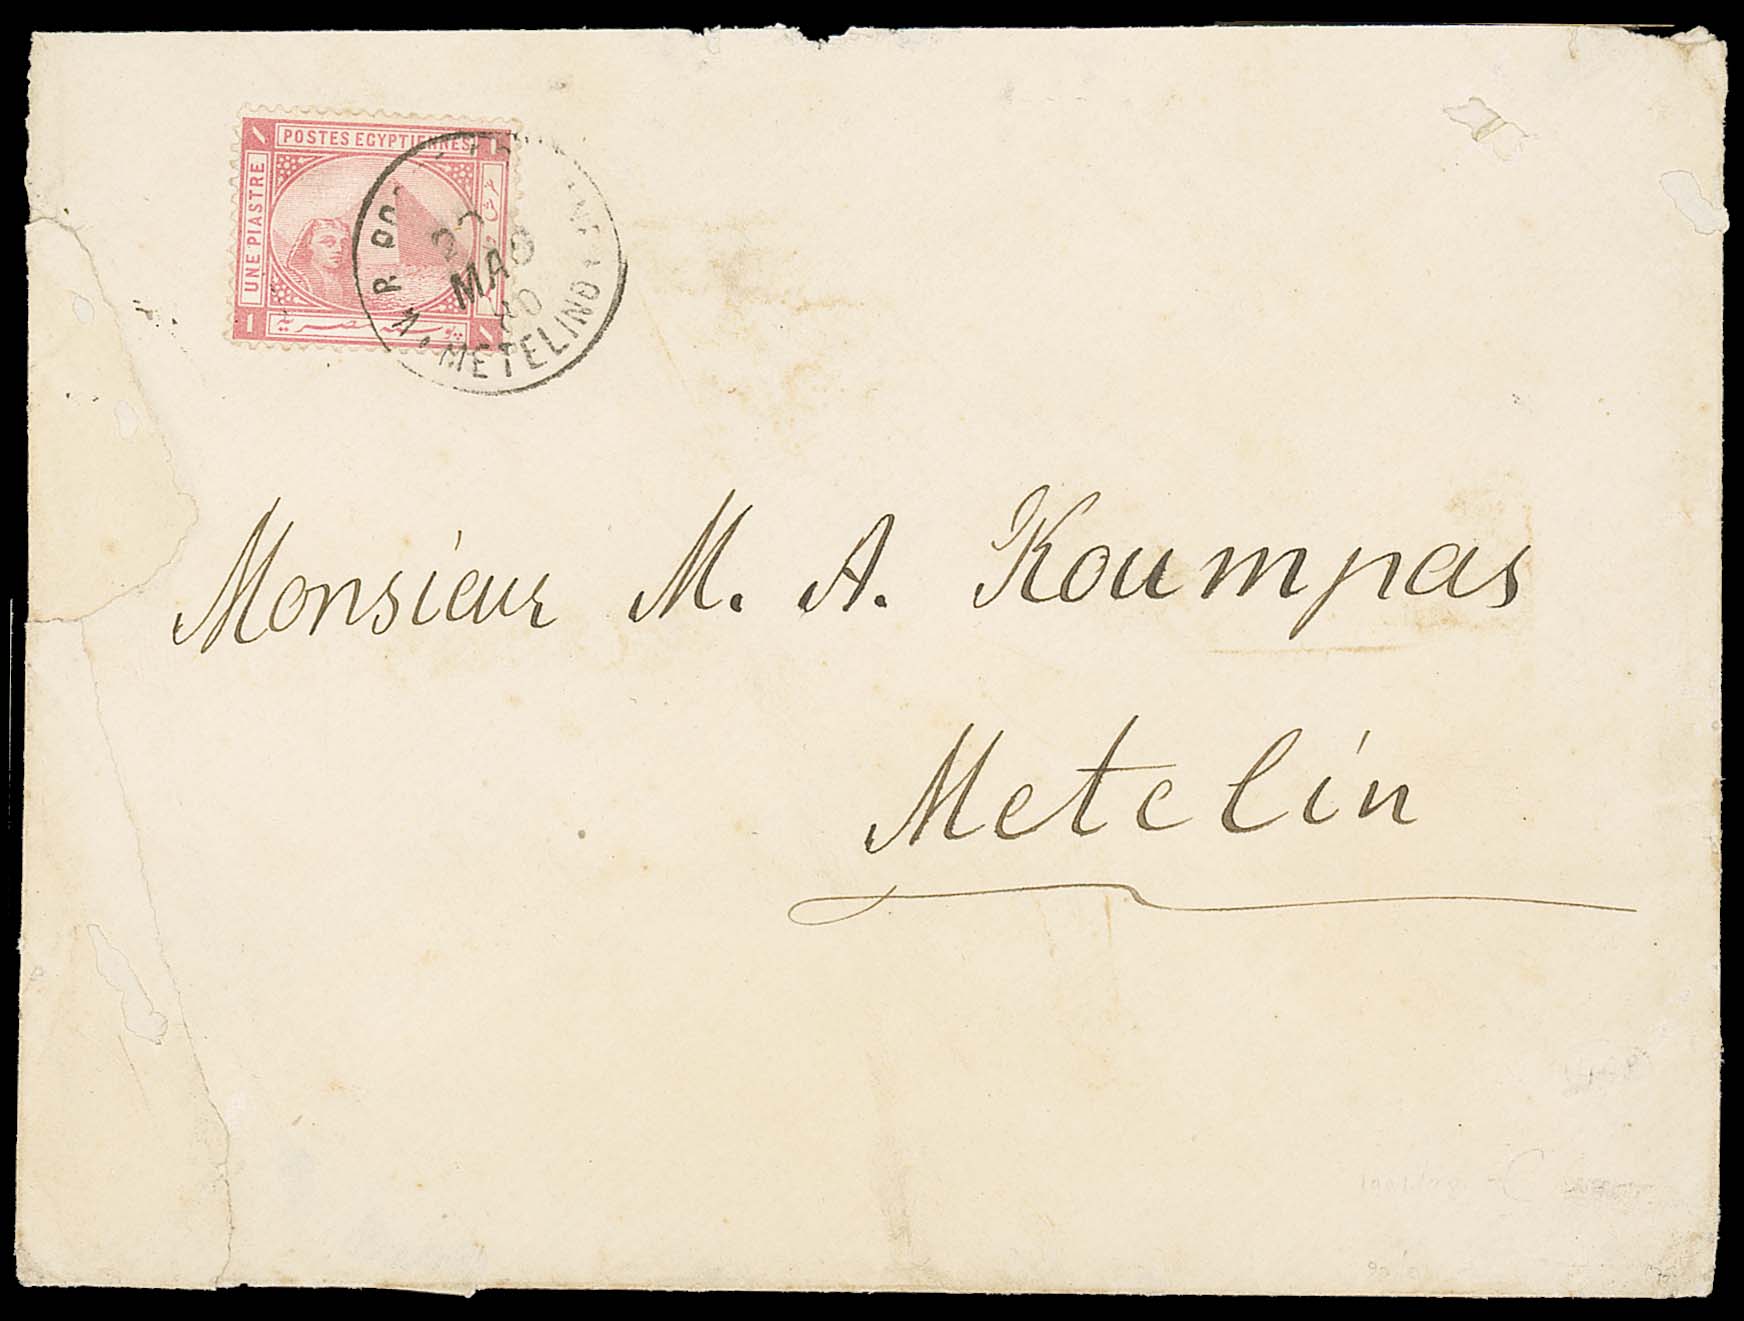 POSTES EGYPTIENNES
UNE PIASTRE
بوسته مصرية
1
METELINO
Monsieur M. A. Koumpas
Metelin